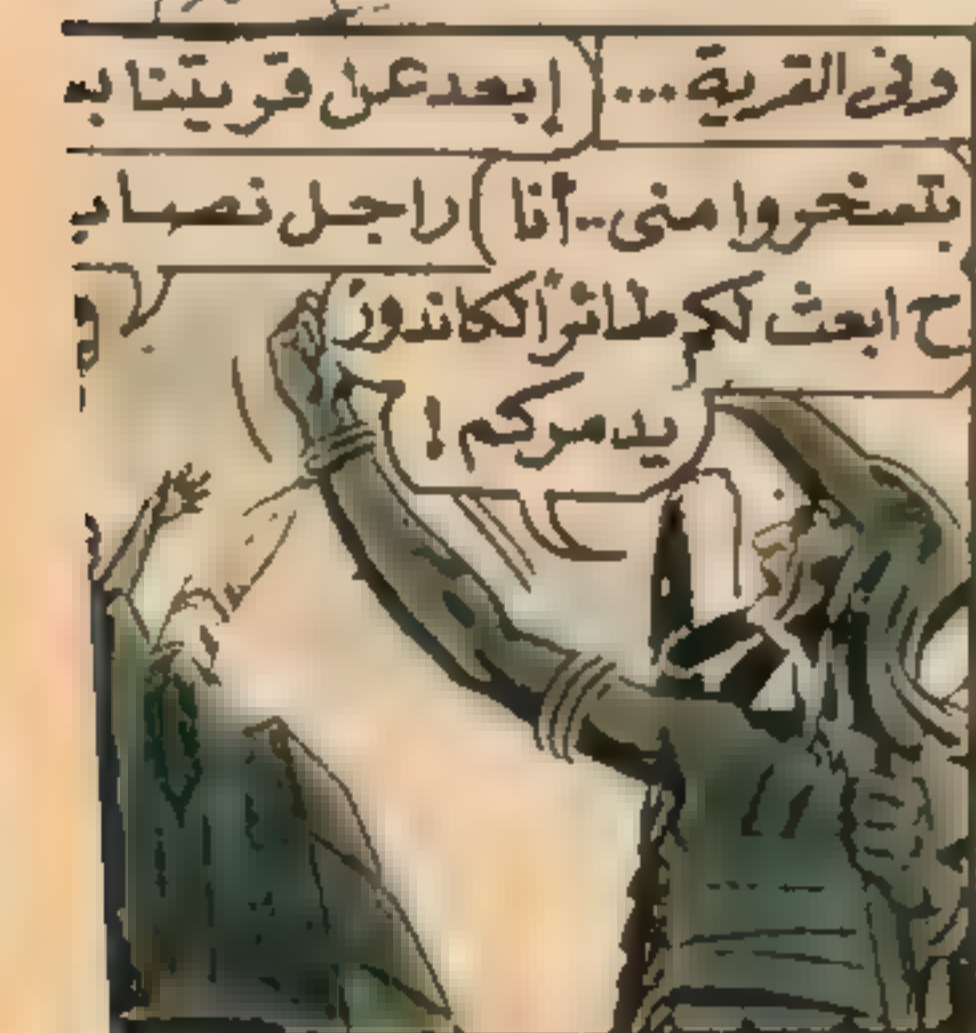 وفى القرية...
إبعد عن قريتنا
راجل نصاب
بتسخروا منى.. أنا
ح ابعث لكم طائر الكاندور
يدمركم!